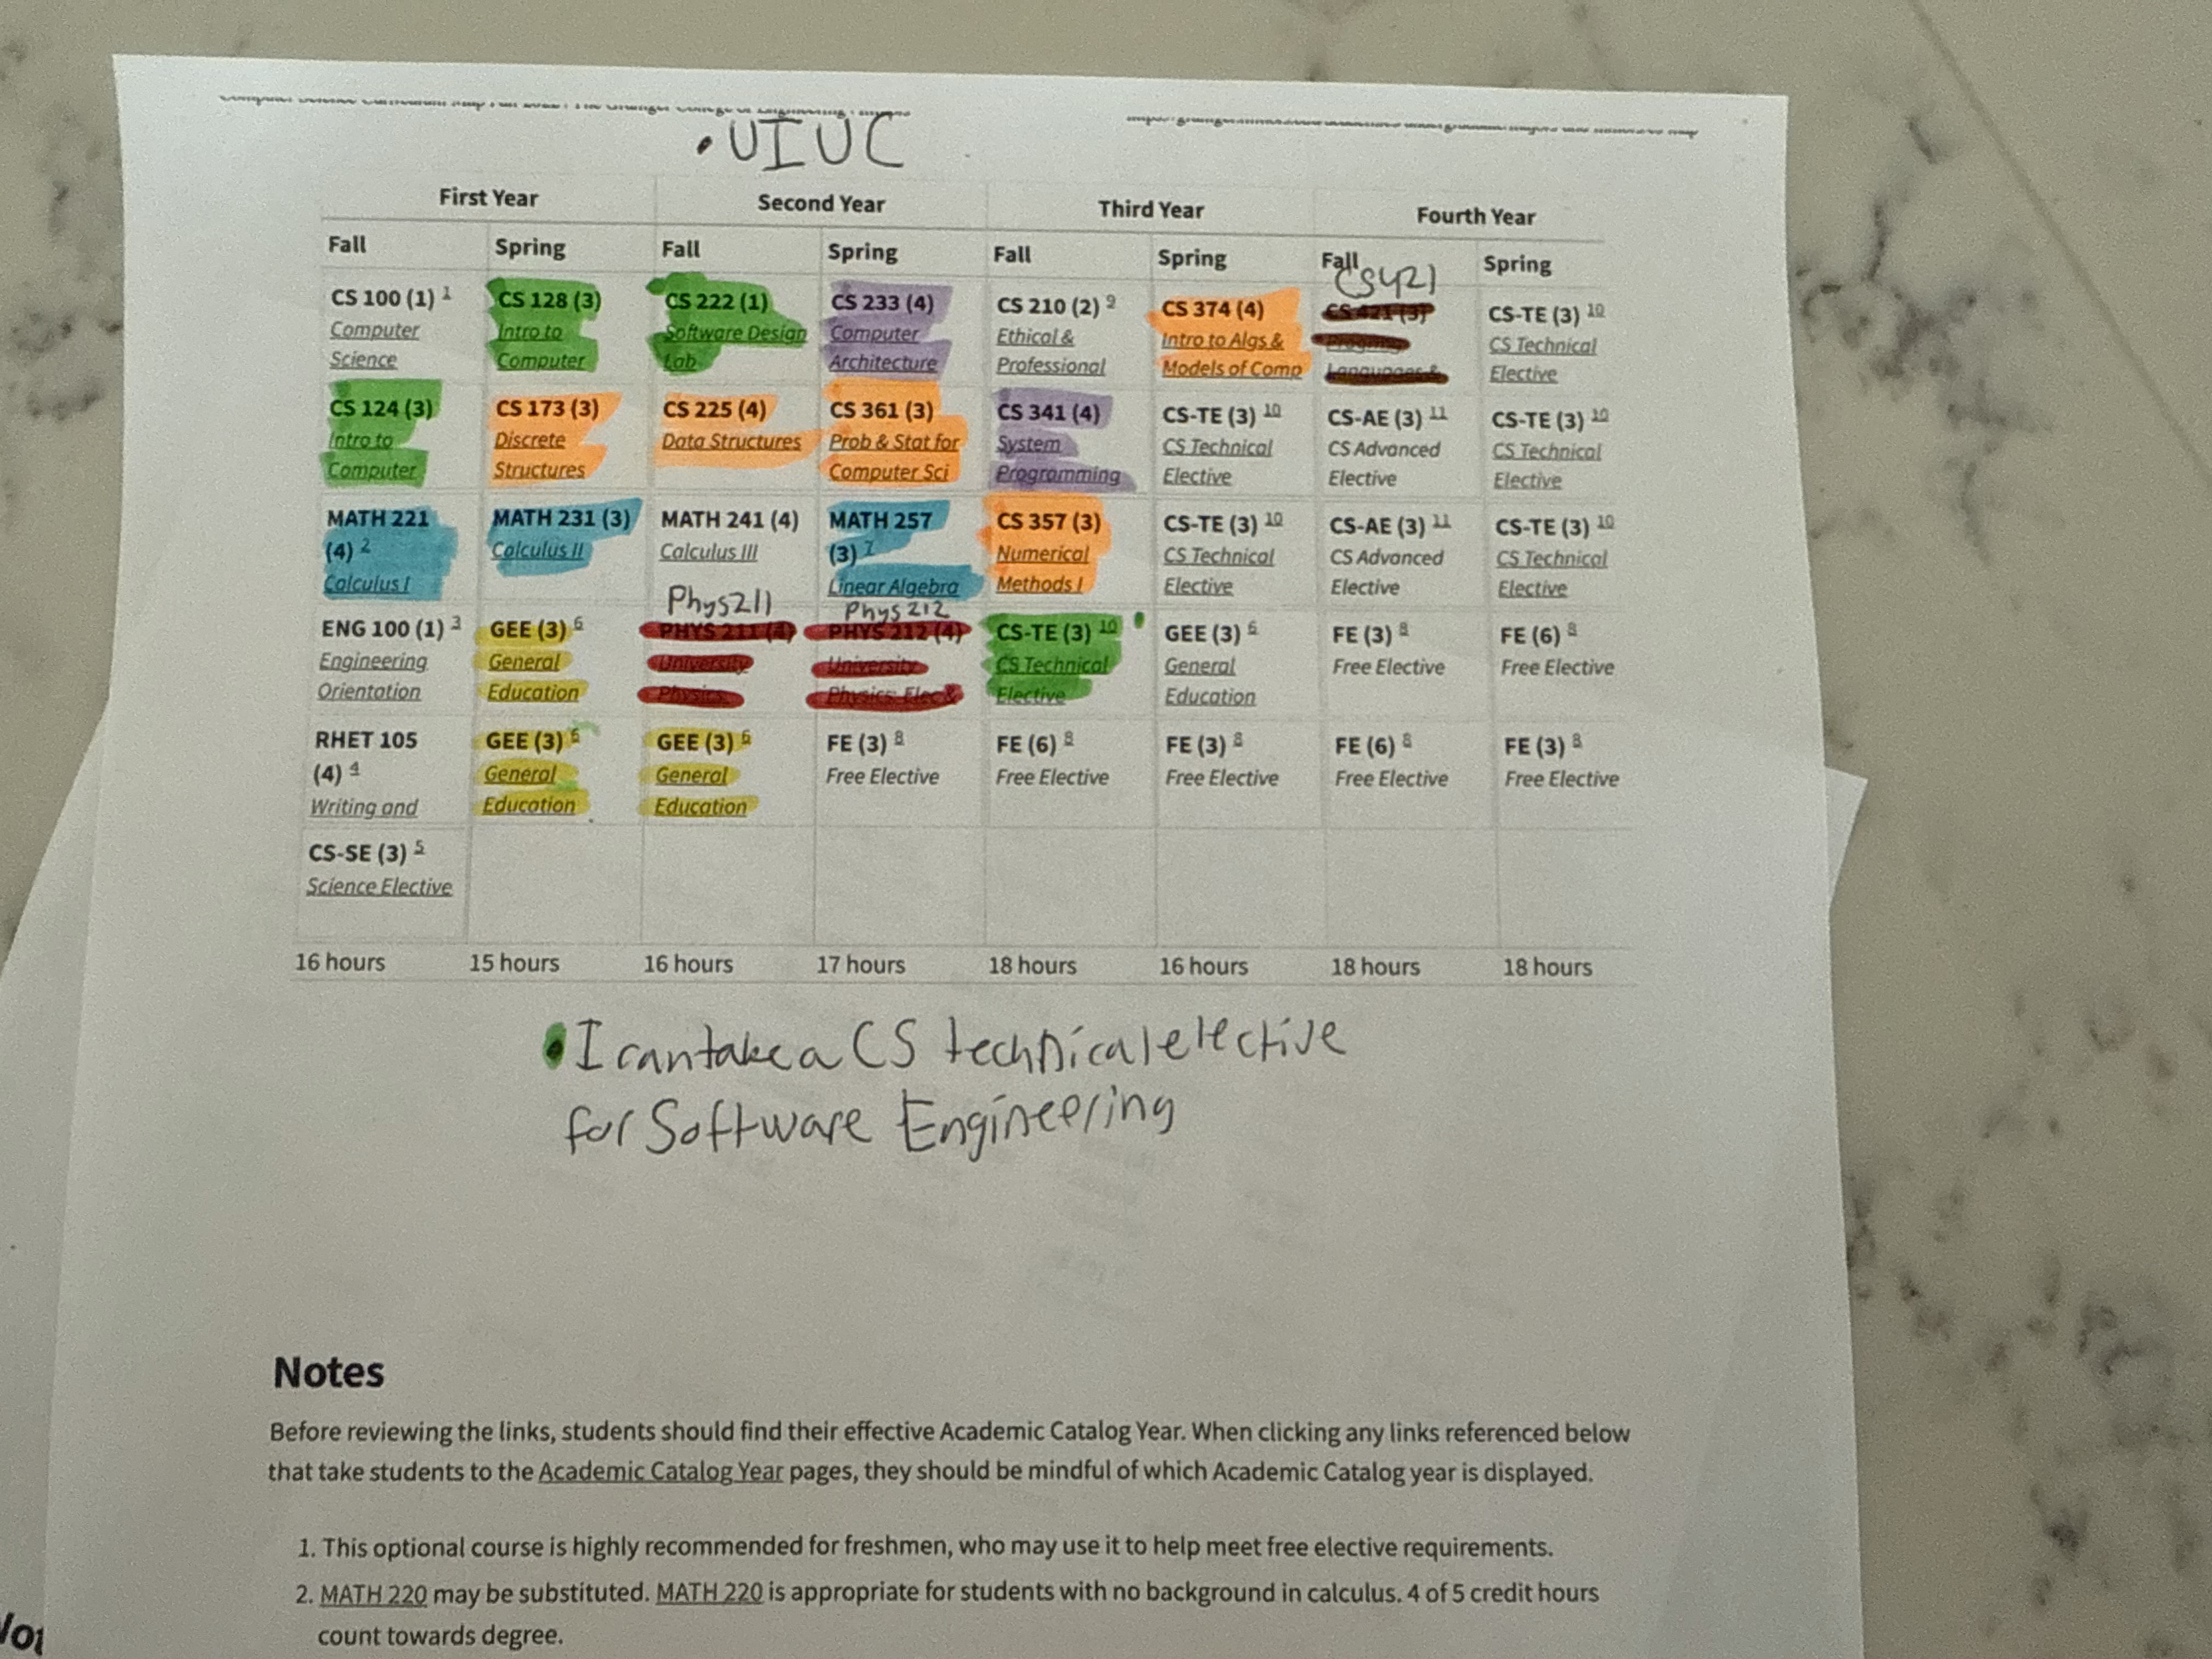 • UIUC
First Year Second Year Third Year Fourth Year
Fall Spring Fall Spring Fall Spring Fall Spring
CS421
CS 100 (1) 1 CS 128 (3) CS 222 (1) CS 233 (4) CS 210 (2) 9 CS 374 (4) CS 421 (3) CS-TE (3) 10
Computer Intro to Software Design Computer Ethical & Intro to Algs & CS Technical
Science Computer Lab Architecture Professional Models of Comp Languages & Elective
CS 124 (3) CS 173 (3) CS 225 (4) CS 361 (3) CS 341 (4) CS-TE (3) 10 CS-AE (3) 11 CS-TE (3) 10
Intro to Discrete Data Structures Prob & Stat for System CS Technical CS Advanced CS Technical
Computer Structures Computer Sci Programming Elective Elective Elective
MATH 221 MATH 231 (3) MATH 241 (4) MATH 257 CS 357 (3) CS-TE (3) 10 CS-AE (3) 11 CS-TE (3) 10
(4) 2 Calculus II Calculus III (3) 7 Numerical CS Technical CS Advanced CS Technical
Calculus I Linear Algebra Methods I Elective Elective Elective
Phys211 Phys 212
ENG 100 (1) 3 GEE (3) 6 PHYS 211 (4) PHYS 212 (4) CS-TE (3) 10 GEE (3) 6 FE (3) 8 FE (6) 8
Engineering General University University CS Technical General Free Elective Free Elective
Orientation Education Physics: Physics: Elec & Elective Education
RHET 105 GEE (3) 6 GEE (3) 6 FE (3) 8 FE (6) 8 FE (3) 8 FE (6) 8 FE (3) 8
(4) 4 General General Free Elective Free Elective Free Elective Free Elective Free Elective
Writing and Education Education
CS-SE (3) 5
Science Elective
16 hours 15 hours 16 hours 17 hours 18 hours 16 hours 18 hours 18 hours
• I can take a CS technical elective
for Software Engineering
Notes
Before reviewing the links, students should find their effective Academic Catalog Year. When clicking any links referenced below
that take students to the Academic Catalog Year pages, they should be mindful of which Academic Catalog year is displayed.
1. This optional course is highly recommended for freshmen, who may use it to help meet free elective requirements.
2. MATH 220 may be substituted. MATH 220 is appropriate for students with no background in calculus. 4 of 5 credit hours
count towards degree.